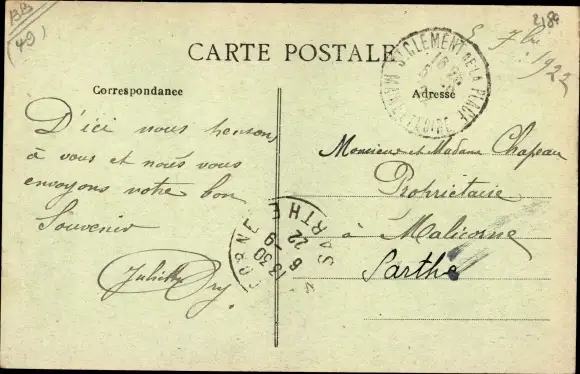 BB
(49)
5 7bre
1922
CARTE POSTALE
Correspondance
Adresse
ST CLEMENT DE LA PLACE
MAINE ET LOIRE
D'ici nous pensons
à vous et nous vous
envoyons notre bon
Souvenir
Juliette Dry
Monsieur et Madame Chapeau
Propriétaire
à Malicorne
Sarthe
SARTHE
13 30
6 9
22